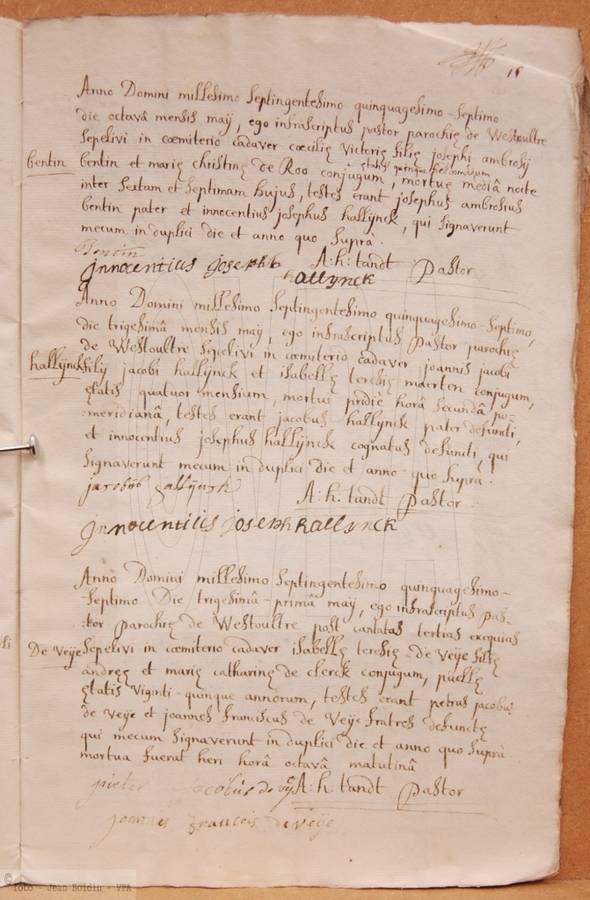 15
Anno Domini millesimo Septingentesimo quinquagesimo-Septimo
die octavâ mensis maÿ, ego infrascriptus pastor parochię de Westoultre
Sepelivi in cœmiterio cadaver cœcilię Victorię filię josephi ambrosÿ
bentin
bentin et marię christinę de Roo conjugum, mortuę mediâ nocte
inter Sextam et Septimam hujus, testes erant josephus ambrosius
bentin pater et innocentius josephus hallÿnck, qui signaverunt
mecum in duplici die et anno quo Supra.
Bentin
jnnocentius joseph hallynck
A: h: tandt Pastor
Anno Domini millesimo Septingentesimo quinquagesimo-Septimo,
die trigesimâ mensis maÿ, ego infrascriptus Pastor parochię
de Westoultre Sepelivi in cœmiterio cadaver joannis jacobi
hallÿnck
filÿ jacobi hallÿnck et isabellę teresię maerten conjugum,
ętatis quatuor mensium, mortus pridie horâ Secundâ po-
-meridianâ, testes erant jacobus hallÿnck pater defuncti,
et innocentius josephus hallÿnck cognatus defuncti, qui
Signaverunt mecum in duplici die et anno quo Supra.
jacobus hallÿnck
A: h: tandt Pastor
jnnocentius joseph hallynck
Anno Domini millesimo Septingentesimo quinquagesimo-
-Septimo Die trigesimâ-primâ maÿ, ego infrascriptus pas-
-tor parochię de Westoultre post cantatas tertias exequias
De Veÿe
Sepelivi in cœmiterio cadaver isabellę teresię de Veÿe filię
andreę et marię catharinę de clerck conjugum, puellę
ętatis Viginti-quinque annorum, testes erant petrus jacobus
de veÿe et joannes franciscus de Veÿe fratres defunctę
qui mecum Signaverunt in duplici die et anno quo Supra
mortua fuerat heri horâ octavâ matutinâ
pieter jacobus de vÿe
A: h: tandt Pastor
joannes francois de veÿe
© foto - Jean Soidin - VPA